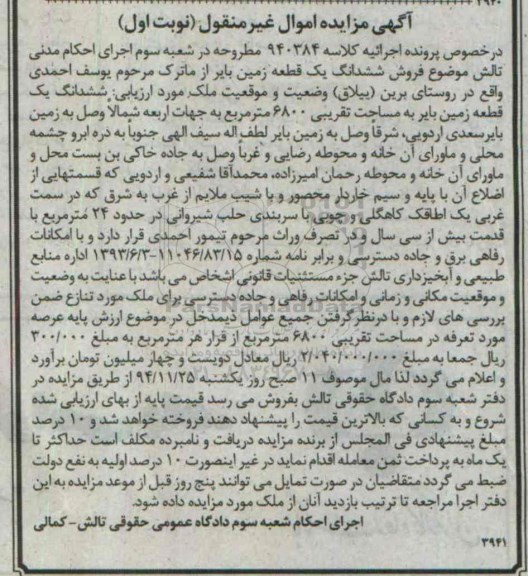 ۳۹۴۰
آگهی مزایده اموال غیرمنقول (نوبت اول)
درخصوص پرونده اجرائیه کلاسه ۹۴۰۳۸۴ مطروحه در شعبه سوم اجرای احکام مدنی
تالش موضوع فروش ششدانگ یک قطعه زمین بایر از ماترک مرحوم یوسف احمدی
واقع در روستای برین (ییلاق) وضعیت و موقعیت ملک مورد ارزیابی: ششدانگ یک
قطعه زمین بایر به مساحت تقریبی ۶۸۰۰ مترمربع به جهات اربعه شمالاً وصل به زمین
بایرسعدی اردویی، شرقاً وصل به زمین بایر لطف اله سیف الهی جنوبا به دره ابرو چشمه
محلی و ماورای آن خانه و محوطه رضایی و غرباً وصل به جاده خاکی بن بست محل و
ماورای آن خانه و محوطه رحمان امیرزاده، محمدآقا شفیعی و اردویی که قسمتهایی از
اضلاع آن با پایه و سیم خاردار محصور و با شیب ملایم از غرب به شرق که در سمت
غربی یک اطاقک کاهگلی و چوبی با سربندی حلب شیروانی در حدود ۲۴ مترمربع با
قدمت بیش از سی سال و در تصرف وراث مرحوم تیمور احمدی قرار دارد و با امکانات
رفاهی برق و جاده دسترسی و برابر نامه شماره ۱۱۰۴۶/۸۳/۱۵-۱۳۹۳/۶/۳ اداره منابع
طبیعی و آبخیزداری تالش جزء مستثنیات قانونی اشخاص می باشد با عنایت به وضعیت
و موقعیت مکانی و زمانی و امکانات رفاهی و جاده دسترسی برای ملک مورد تنازع ضمن
بررسی های لازم و با درنظر گرفتن جمیع عوامل ذیمدخل در موضوع ارزش پایه عرصه
مورد تعرفه در مساحت تقریبی ۶۸۰۰ مترمربع از قرار هر مترمربع به مبلغ ۳۰۰/۰۰۰
ریال جمعا به مبلغ ۲/۰۴۰/۰۰۰/۰۰۰ ریال معادل دویست و چهار میلیون تومان برآورد
و اعلام می گردد لذا مال موصوف ۱۱ صبح روز یکشنبه ۹۴/۱۱/۲۵ از طریق مزایده در
دفتر شعبه سوم دادگاه حقوقی تالش بفروش می رسد قیمت پایه از بهای ارزیابی شده
شروع و به کسانی که بالاترین قیمت را پیشنهاد دهند فروخته خواهد شد و ۱۰ درصد
مبلغ پیشنهادی فی المجلس از برنده مزایده دریافت و نامبرده مکلف است حداکثر تا
یک ماه به پرداخت ثمن معامله اقدام نماید در غیر اینصورت ۱۰ درصد اولیه به نفع دولت
ضبط می گردد متقاضیان در صورت تمایل می توانند پنج روز قبل از موعد مزایده به این
دفتر اجرا مراجعه تا ترتیب بازدید آنان از ملک مورد مزایده داده شود.
اجرای احکام شعبه سوم دادگاه عمومی حقوقی تالش- کمالی
۳۹۴۱